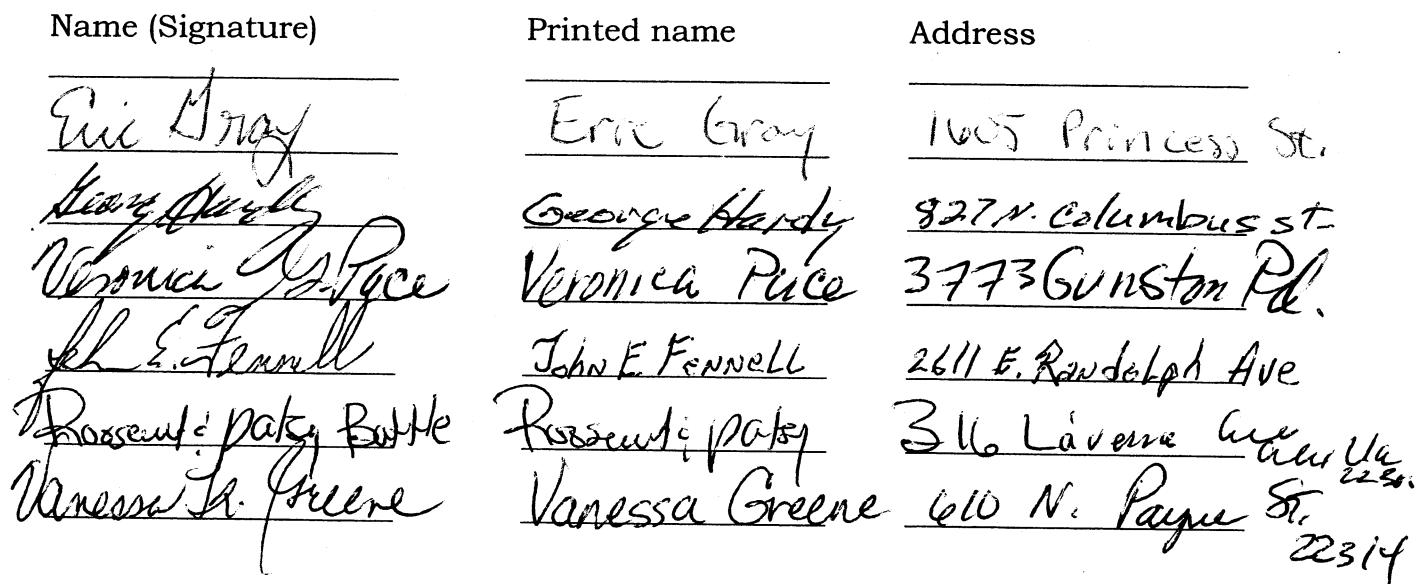 Name (Signature) Printed name Address
Eric Gray Eric Gray 1605 Princess St.
George Hardy George Hardy 827 N. Columbus st
Veronica Price 3773 Gunston Rd.
John E. Fennell John E. Fennell 2611 E. Randolph Ave
& patsy Battle & patsy 316 Laverne Ave
Va
Vanessa R. Greene Vanessa Greene 610 N. Payne St.
22314